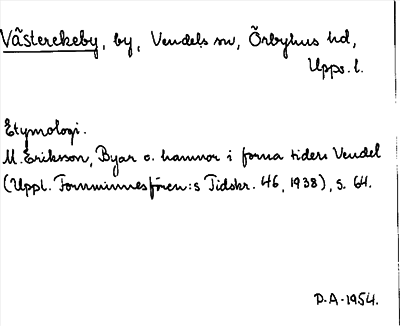 Västerekeby, by, Vendels sn, Örbyhus hd,
Upps. l.
Etymologi.
M. Eriksson, Byar o. hamnor i forna tiders Vendel
(Uppl. Fornminnesfören:s Tidskr. 46, 1938), s. 64.
D.A-1954.